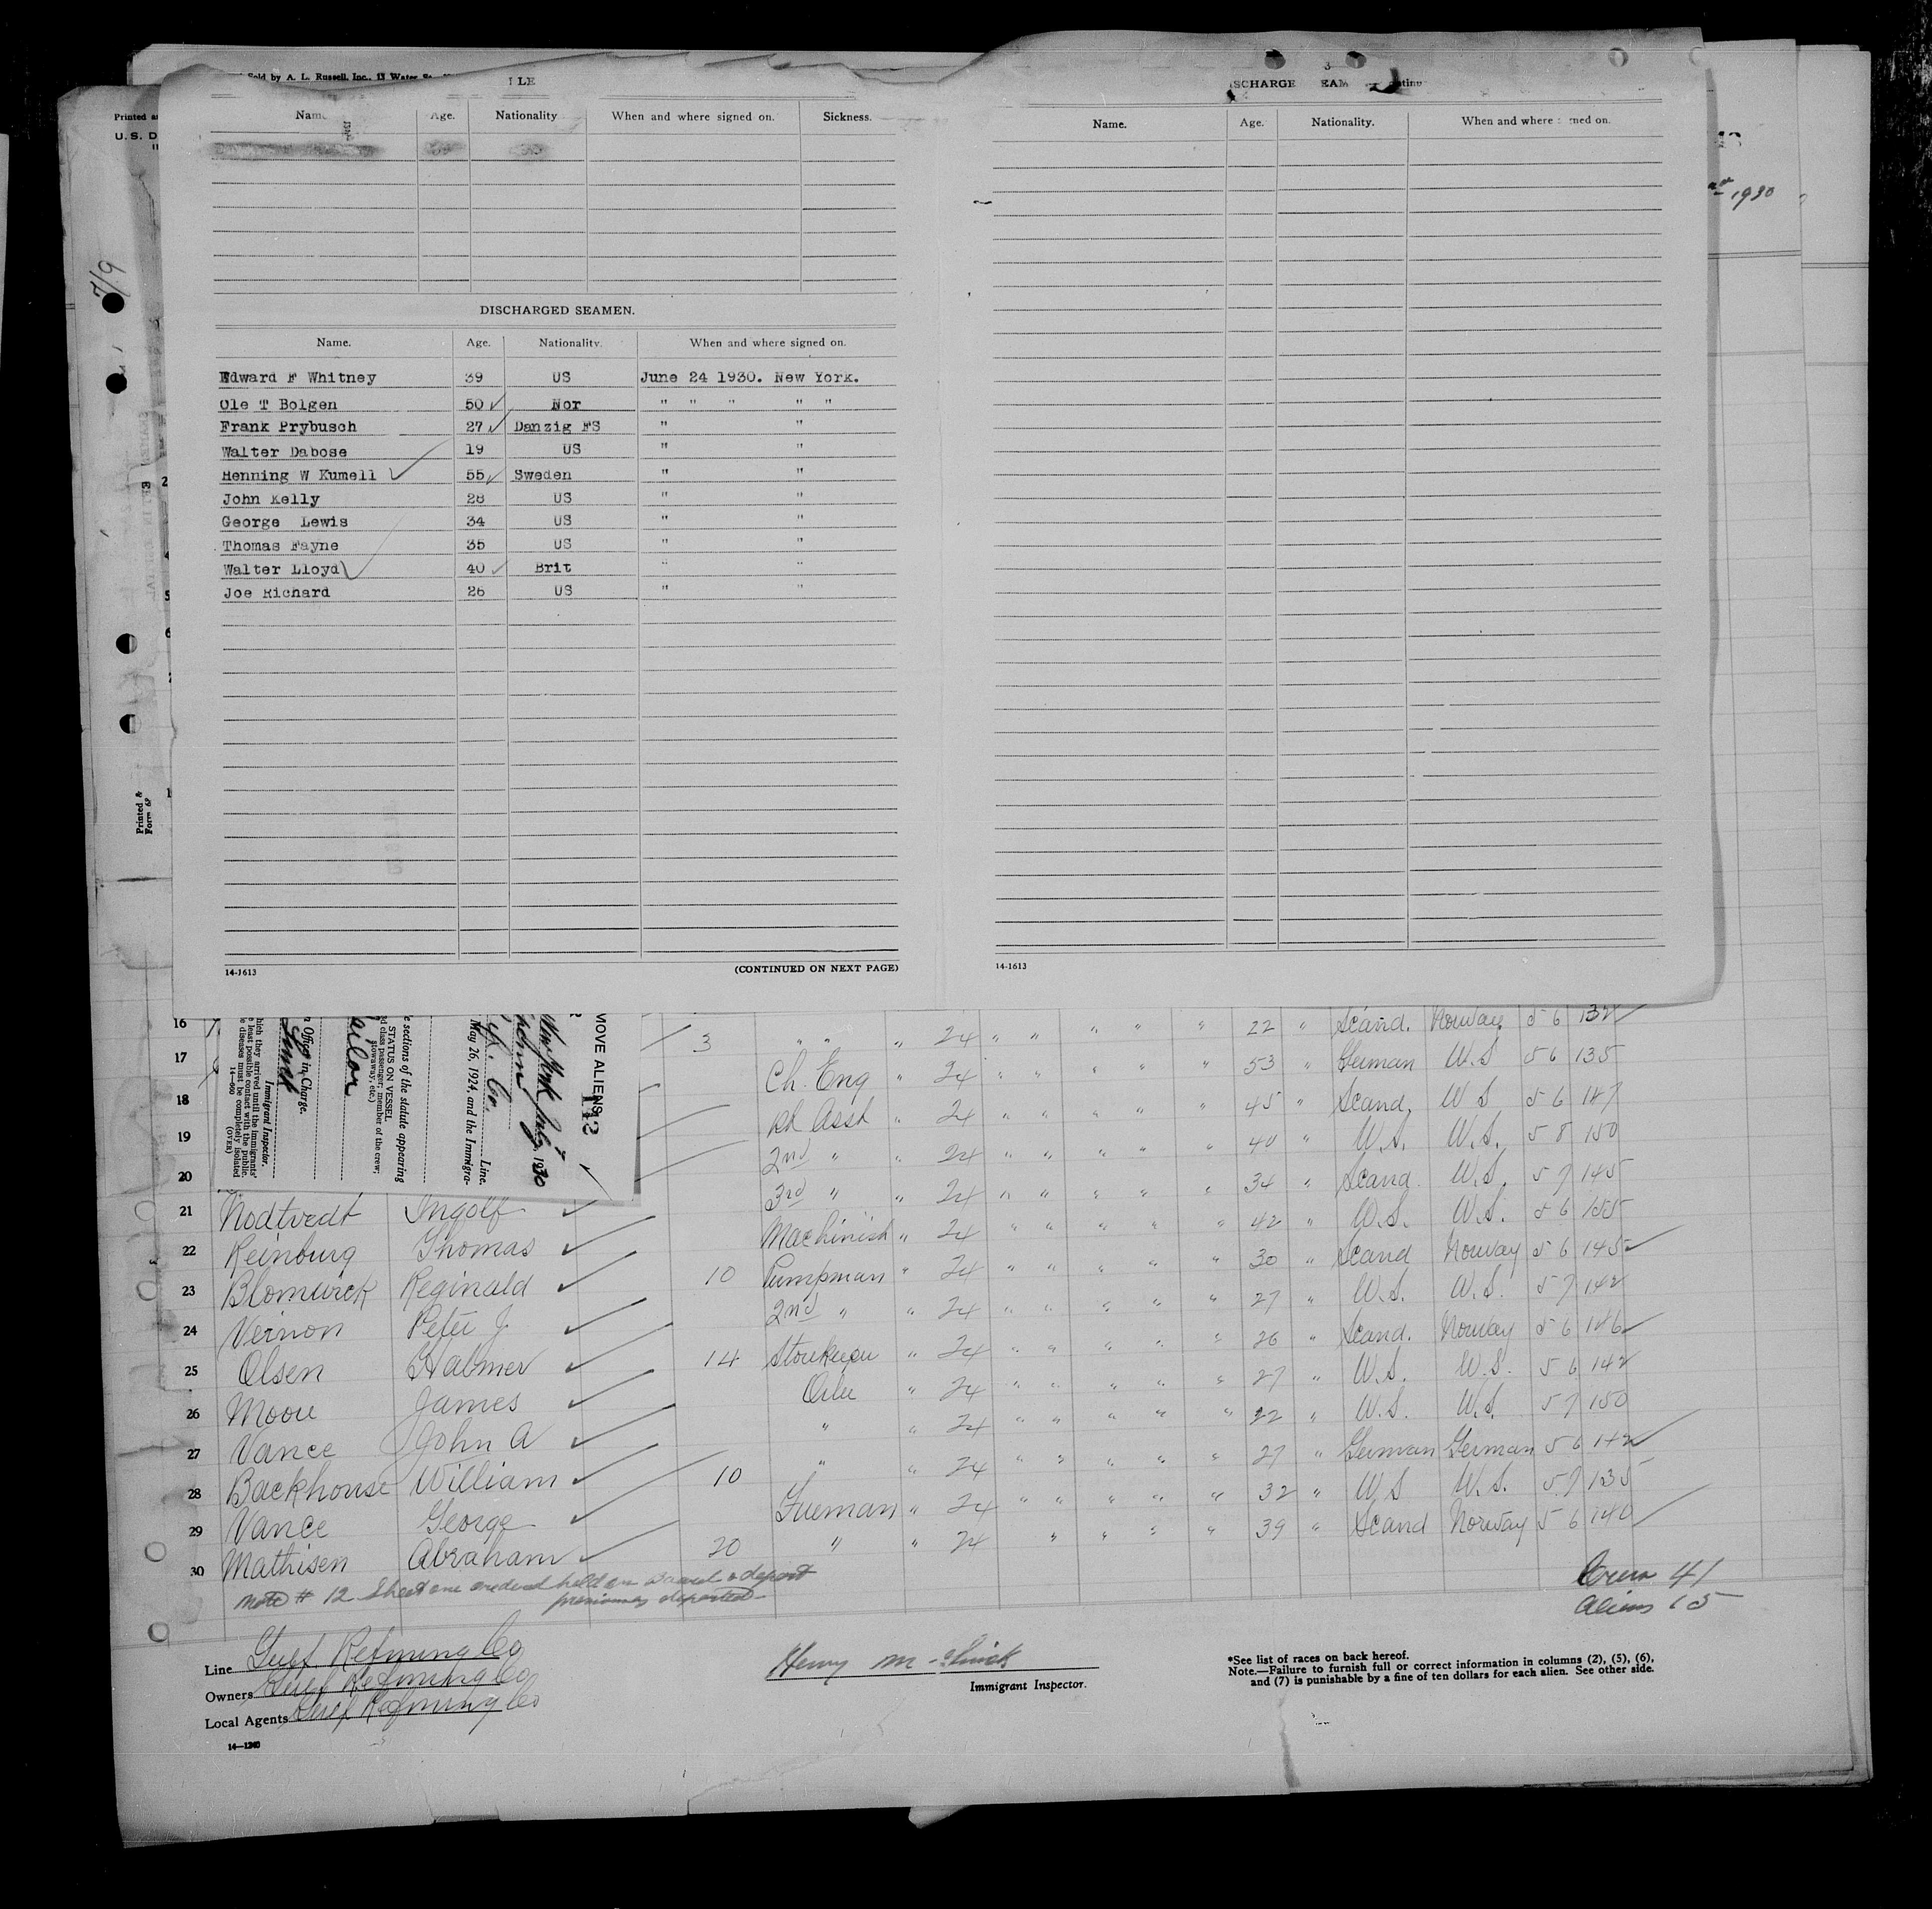 Sold by A. L. Russell, Inc., 13 Water
Printed
U. S. D
Name Age. Nationality When and where signed on. Sickness.
DISCHARGED SEAMEN.
Name. Age. Nationality. When and where signed on.
Edward F Whitney 39 US June 24 1930. New York.
Ole T Bolgen 50 Nor " " " " "
Frank Prybusch 27 Danzig FS " "
Walter Dabose 19 US " "
Henning W Kumell 55 Sweden " "
John Kelly 28 US " "
George Lewis 34 US " "
Thomas Fayne 35 US " "
Walter Lloyd 40 Brit " "
Joe Richard 26 US " "
14-1613 (CONTINUED ON NEXT PAGE)
3
Name. Age. Nationality. When and where signed on.
14-1613
1930
7/9
Printed &
MOVE ALIENS
113
1930
Line.
May 26, 1924, and the Immigra-
e sections of the statute appearing
STATUS ON VESSEL
d class passenger; member of the crew;
stowaway, etc.)
ailor
n Officer in Charge.
Immigrant Inspector.
hich they arrived until the immigrants'
e least possible contact with the public.
e diseases must be completely isolated
14—660 (OVER)
16 3 " " " 24 " " " " " 22 " Scand. Norway 5 6 132
17 Ch. Eng " 24 " " " " " 53 " German U.S 5 6 135
18 1st Asst " 24 " " " " " 45 " Scand. U S 5 6 147
19 2nd " " 24 " " " " " 40 " U.S. U.S. 5 8 150
20 3rd " " 24 " " " " " 34 " Scand. U.S. 5 7 145
21 Nodtvedt Ingolf Machinist " 24 " " " " " 42 " U.S. U.S. 5 6 155
22 Reinburg Thomas 10 Pumpman " 24 " " " " " 30 " Scand Norway 5 6 145
23 Blomwick Reginald 2nd " " 24 " " " " " 27 " U.S. U.S. 5 7 142
24 Vernon Peter J 14 Storkeepr " 24 " " " " " 26 " Scand. Norway 5 6 146
25 Olsen Halmer Oiler " 24 " " " " " 27 " U.S. U.S. 5 6 142
26 Moore James " " 24 " " " " " 22 " U.S. U.S. 5 7 150
27 Vance John A 10 " " 24 " " " " " 27 " German German 5 6 142
28 Backhouse William Fireman " 24 " " " " " 32 " U.S U.S. 5 7 135
29 Vance George 20 " " 24 " " " " 39 " Scand Norway 5 6 140
30 Mathisen Abraham
Note # 12 Sheet one ordered held on board & deport
previously deported
Crew 41
Aliens 15
Line Gulf Refining Co
Owners Gulf Refining Co
Local Agents Gulf Refining Co
14—1240
Henry
Immigrant Inspector.
*See list of races on back hereof.
Note.—Failure to furnish full or correct information in columns (2), (5), (6),
and (7) is punishable by a fine of ten dollars for each alien. See other side.